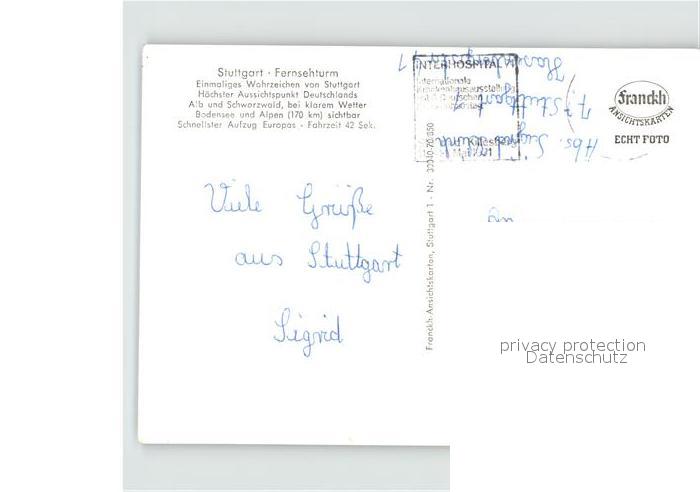 Stuttgart · Fernsehturm
Einmaliges Wahrzeichen von Stuttgart
Höchster Aussichtspunkt Deutschlands
Alb und Schwarzwald, bei klarem Wetter
Bodensee und Alpen (170 km) sichtbar
Schnellster Aufzug Europas - Fahrzeit 42 Sek.
Viele Grüße
aus Stuttgart
Sigrid
Franckh-Ansichtskarten, Stuttgart 1 - Nr.
INTERHOSPITAL
Internationale
Killesberg
Abs. Sigrid
7 Stuttgart 1
Franckh
ANSICHTSKARTEN
ECHT FOTO
An
privacy protection
Datenschutz